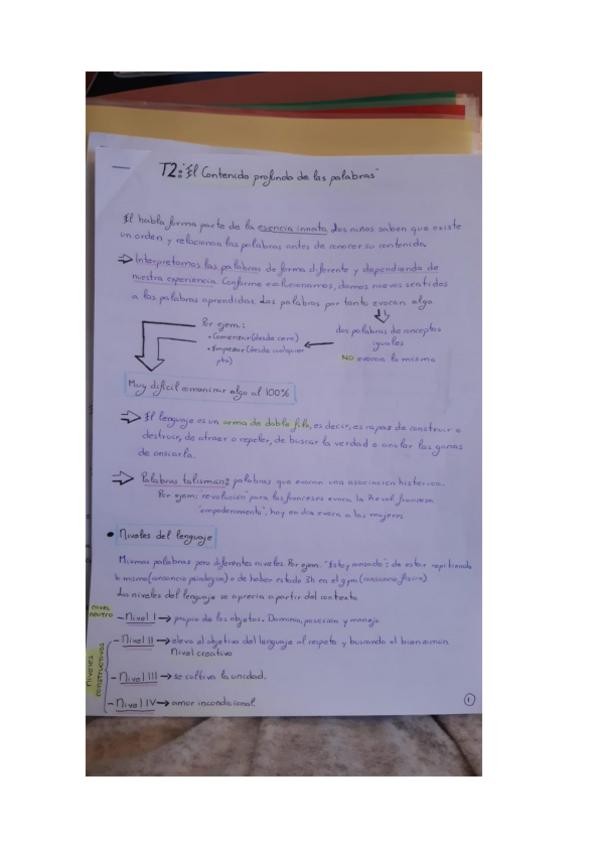 T2: "El Contenido profundo de las palabras"
El habla forma parte de la esencia innata. Los niños saben que existe
un orden y relacionan las palabras antes de conocer su contenido.
⇒ Interpretamos las palabras de forma diferente y dependiendo de
nuestra experiencia. Conforme evolucionamos, damos nuevos sentidos
a las palabras aprendidas. Las palabras por tanto evocan algo
dos palabras de conceptos
iguales
NO evocan lo mismo
Por ejem.:
• Comenzar (desde cero)
• Empezar (desde cualquier
pto)
Muy difícil comunicar algo al 100%
⇒ El lenguaje es un arma de doble filo, es decir, es capaz de construir o
destruir, de atraer o repeler, de buscar la verdad o anular las ganas
de buscarla.
⇒ Palabras talismán: palabras que evocan una asociación histórica.
Por ejem: "revolución" para los franceses evoca la Revol. francesa
"empoderamiento", hoy en día evoca a las mujeres
• Niveles del lenguaje
Mismas palabras pero diferentes niveles. Por ejem. "Estoy cansado": de estar repitiendo
lo mismo (cansancio psicológico) o de haber estado 3h en el gym (cansancio físico)
Los niveles del lenguaje se aprecia a partir del contexto
nivel
neutro
- Nivel I → propio de los objetos. Dominio, posesión y manejo
Niveles
constructivos
- Nivel II → eleva el objetivo del lenguaje al respeto y buscando el bien común
Nivel creativo
- Nivel III → se cultiva la unidad.
- Nivel IV → amor incondicional.
1